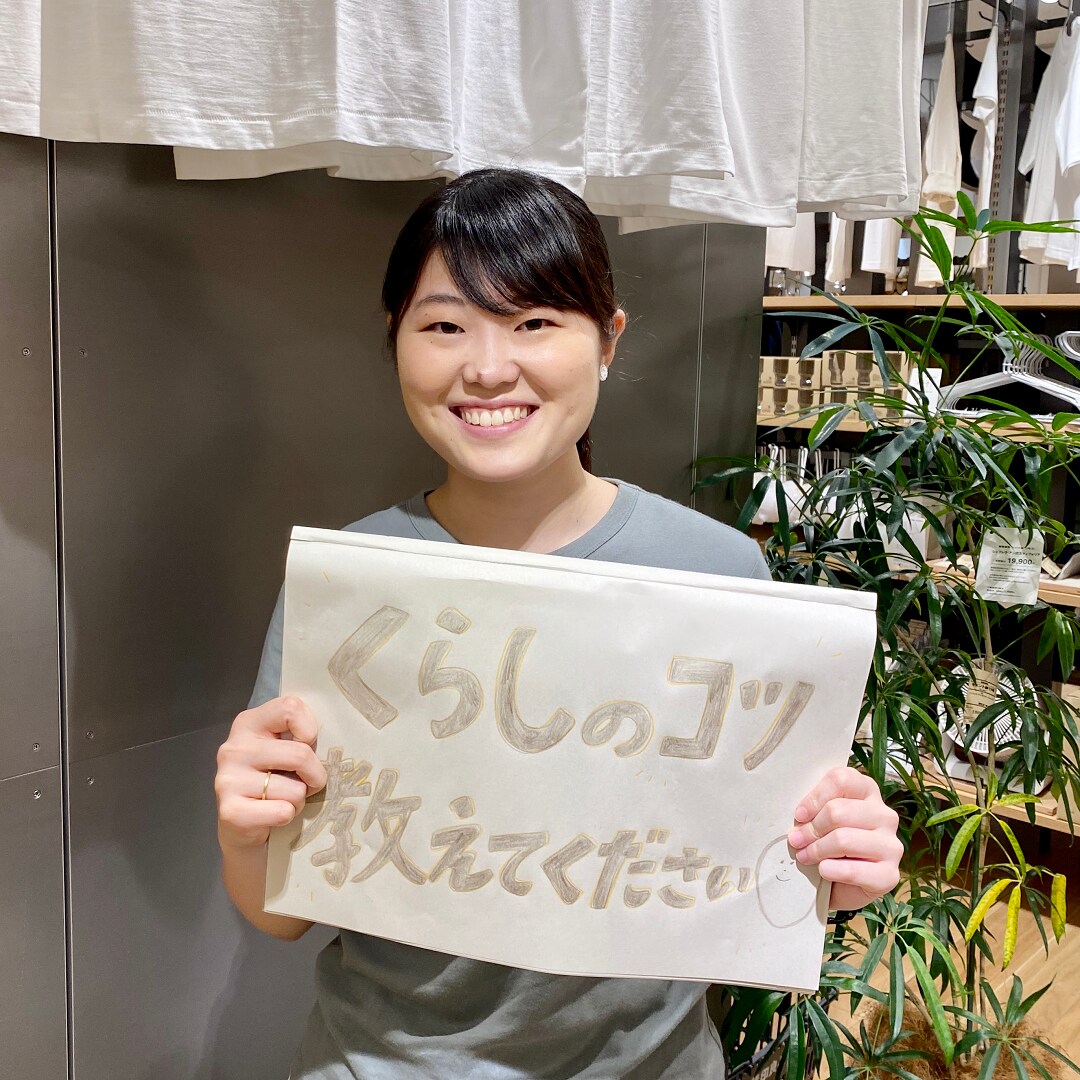 くらしのコツ
教えてください
19,900